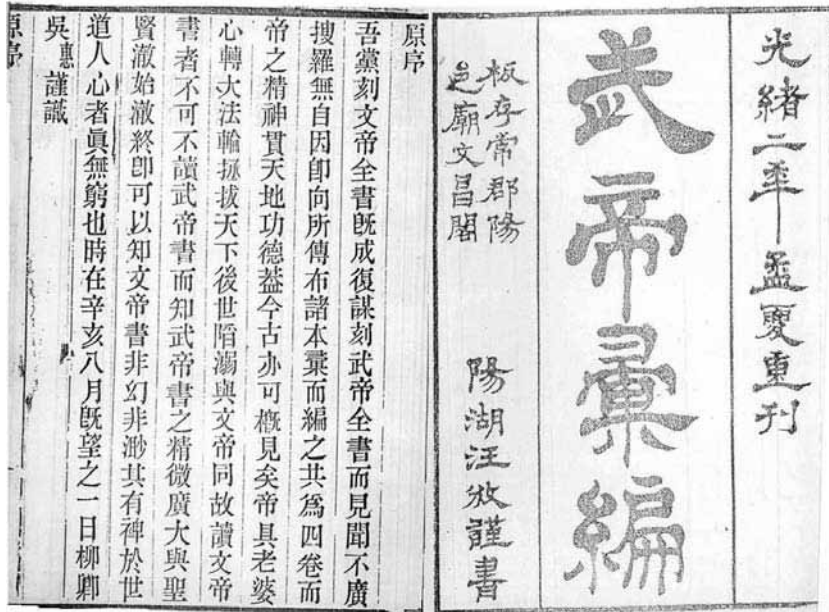 光緒二年孟夏重刊
武帝彙編
板存常郡陽
邑廟文昌閣
陽湖汪攽謹書
原序
吾黨刻文帝全書旣成復謀刻武帝全書而見聞不廣
搜羅無自因卽向所傳布諸本彙而編之共爲四卷而
帝之精神貫天地功德葢今古亦可槪見矣帝具老婆
心轉大法輪拯拔天下後世陷溺與文帝同故讀文帝
書者不可不讀武帝書而知武帝書之精微廣大與聖
賢澈始澈終卽可以知文帝書非幻非渺其有裨於世
道人心者眞無窮也時在辛亥八月旣望之一日柳卿
吳惠謹識
原序